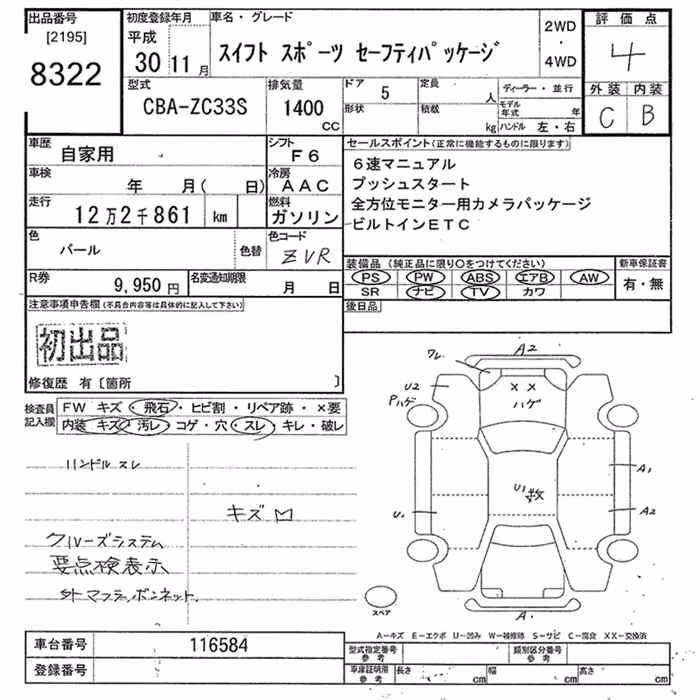 出品番号
[2195]
8322
初度登録年月
平成
30 11 月
車名・グレード
スイフト スポーツ セーフティパッケージ
2WD
・
4WD
評価点
4
外装 内装
C B
型式
CBA-ZC33S
排気量
1400
CC
ドア 5
形状
定員 人
積載 kg
ディーラー・並行
モデル年式 年
ハンドル 左・右
車歴
自家用
シフト
F6
車検
年 月( 日)
冷房
AAC
走行
12万2千861 km
燃料
ガソリン
色
パール
色替
色コード
ZVR
R券
9,950 円
名変通知期限
月 日
セールスポイント(正常に機能するものに限ります)
6速マニュアル
プッシュスタート
全方位モニター用カメラパッケージ
ビルトインETC
装備品 (純正品に限り○をつけてください)
PS PW ABS エアB AW
SR ナビ TV カワ
新車保証書
有・無
後日品
注意事項申告欄(不具合内容等は具体的に記入して下さい)
初出品
修復歴 有〔箇所 〕
検査員
記入欄
FW キズ・飛石・ヒビ割・リペア跡・×要
内装 キズ・汚レ・コゲ・穴・スレ・キレ・破レ
ハンドルスレ
キズ
クルーズシステム
要点検表示
外マフラ、ボンネット
ワレ
A2
U2
Pハゲ
××
ハゲ
U1 数
A1
A2
U1
A1
スペア
A−キズ E−エクボ U−凹み W−補修跡 S−サビ C−腐食 XX−交換済
車台番号
116584
登録番号
型式指定番号
参考
類別区分番号
参考
車庫証明用
参考
長さ cm 幅 cm 高さ cm